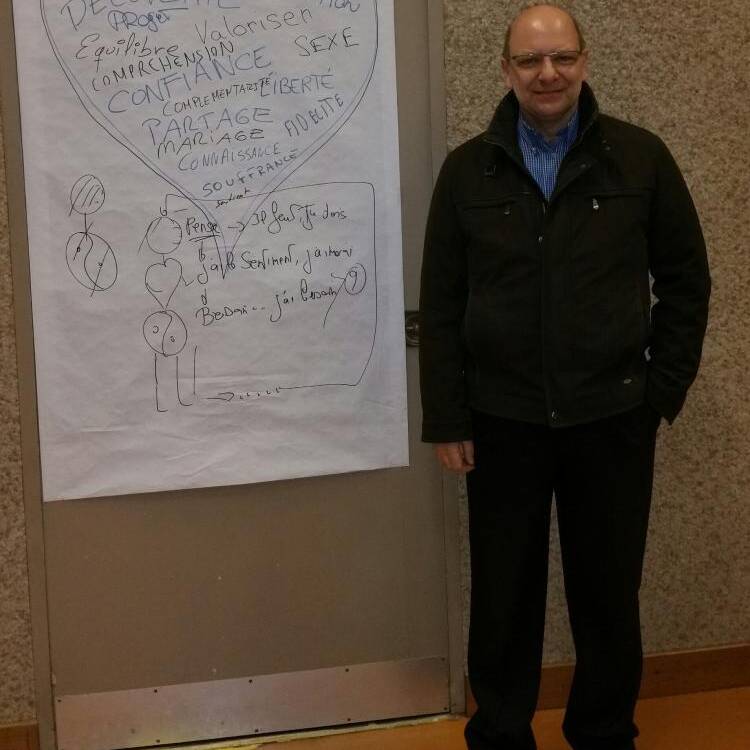 Projet
Equilibre Valoriser
COMPREHENSION SEXE
CONFIANCE
COMPLEMENTARITÉ LIBERTÉ
PARTAGE FIDELITE
MARIAGE
CONNAISSANCE
SOUFFRANCE
Pense → Il faut, Tu dois
j'ai le Sentiment, j'aimerai
Besoin... j'ai besoin